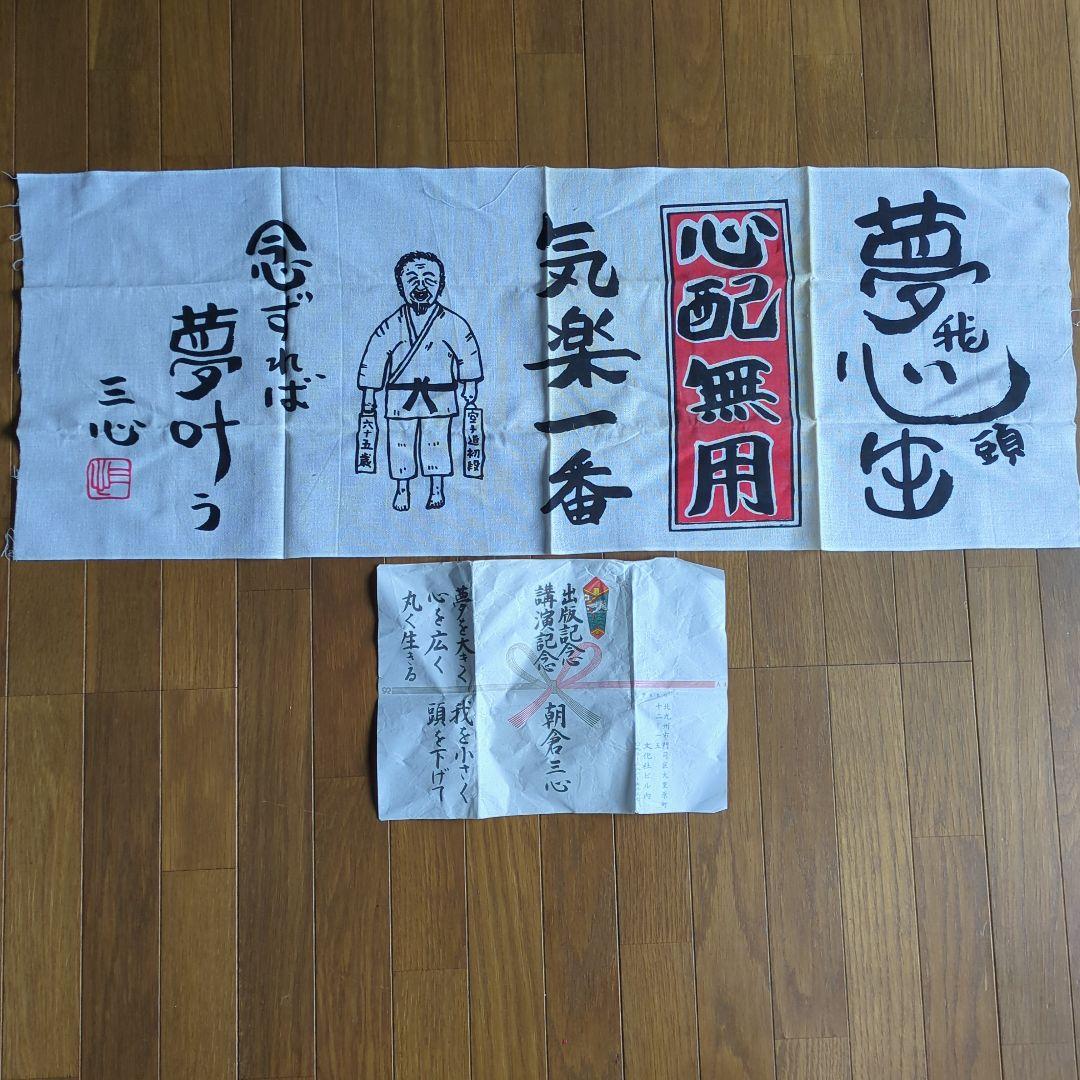 夢
我
心
頭
出
心配無用
気楽一番
空手道初段
六十五歳
念ずれば
夢叶う
三心
出版記念
講演記念
朝倉三心
夢を大きく
我を小さく
心を広く
頭を下げて
丸く生きる
北九州市門司区大里原町
十二―一五
文化社ビル内